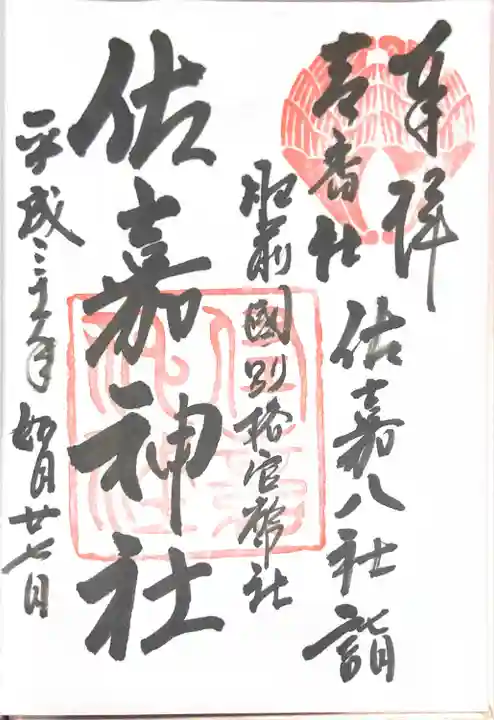 奉拝
佐嘉八社詣
肥前國別格官幣社
佐嘉神社
平成三十一年 如月廿七日